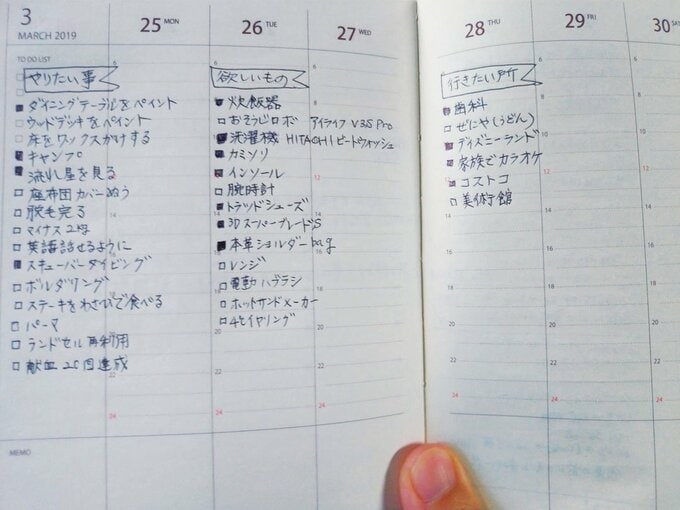 3
MARCH 2019
25 MON
26 TUE
27 WED
TO DO LIST
やりたい事
■ ダイニングテーブルをペイント
□ ウッドデッキをペイント
□ 床をワックスがけする
■ キャンプ
■ 流れ星を見る
□ 座布団カバーぬう
□ 脱毛完了
□ マイナス2kg
□ 英語話せるように
■ スキューバーダイビング
□ ボルダリング
□ ステーキをわさびで食べる
□ パーマ
□ ランドセル再利用
□ 献血20回達成
MEMO
欲しいもの
■ 炊飯器
□ おそうじロボ アイライフ V3S Pro
■ 洗濯機 HITACHI ビートウォッシュ
■ カミソリ
■ インソール
□ 腕時計
■ トラッドシューズ
■ 3DスーパーブレードS
■ 本革ショルダーbag
□ レンジ
□ 電動ハブラシ
□ ホットサンドメーカー
□ イヤリング
28 THU
29 FRI
30 SA
行きたい所
■ 歯科
□ ぜにや(うどん)
■ ディズニーランド
■ 家族でカラオケ
■ コストコ
□ 美術館
6
8
10
12
14
16
18
20
22
24